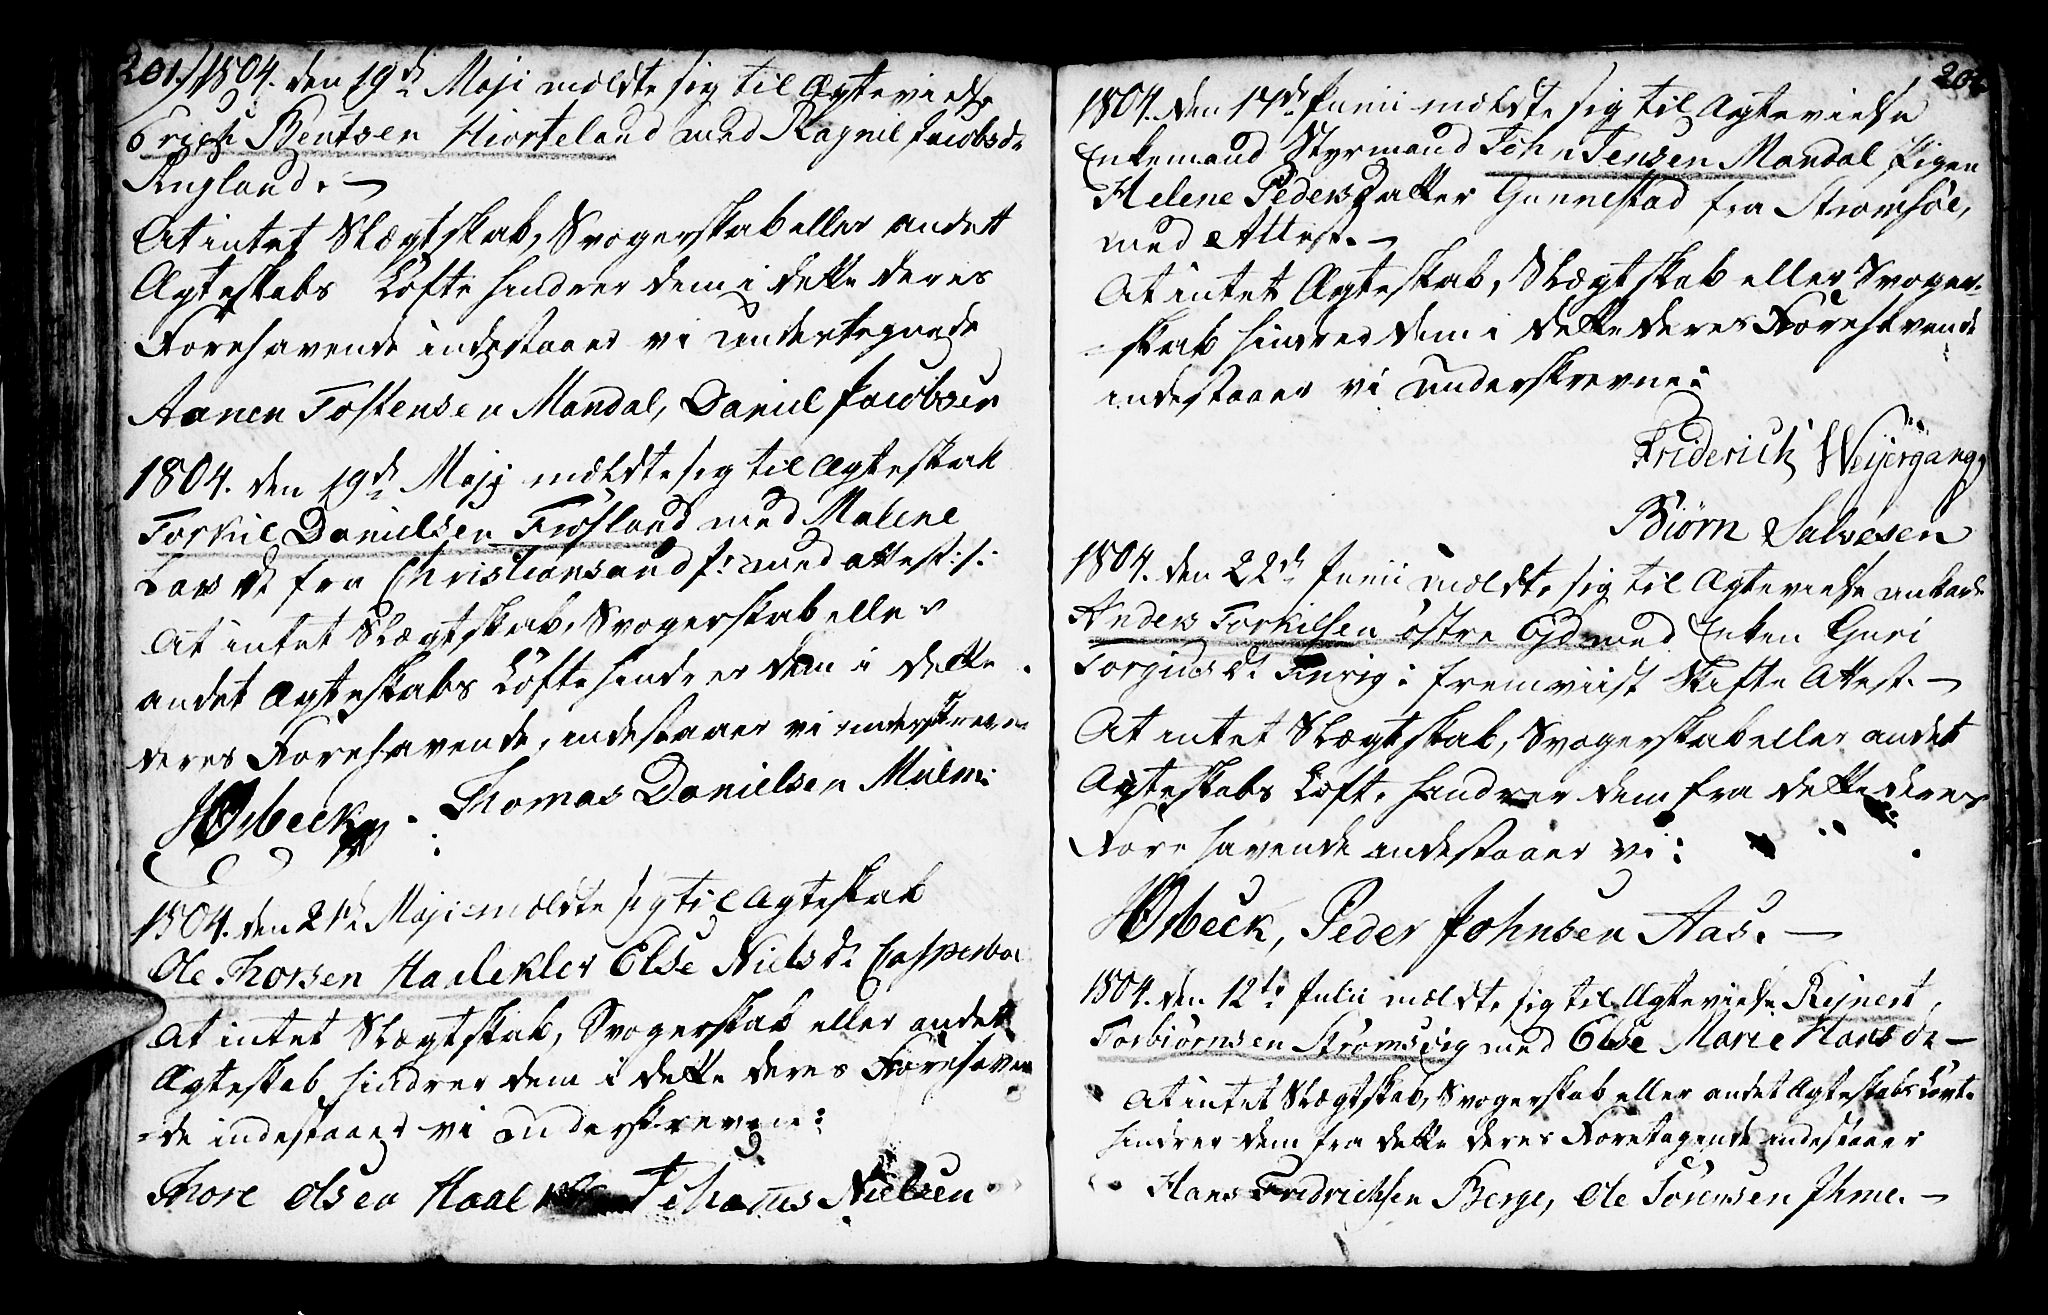 201.) 1804. den 19de Maji meldte sig til Ægtevielse
Erich Bentsen Hiorteland med Ragnil Jacobsdr
Røgland. –
At intet Slægtskab, Svogerskab eller andet
Ægteskabs Løfte hindrer dem i dette deres
Forehavende indestaaer vi undertegnede
Aanen Tostensen Mandal, Daniel Jacobsen
1804. den 19de Maji meldte sig til Ægteskab
Torkil Danielsen Frøsland med Malene
Larsdr fra Christiansand /: med attest :/:
At intet Slægtskab, Svogerskab eller
andet Ægteskabs Løfte hindrer dem i dette
deres Forehavende, indestaaer vi underskrevne
Orbeck. Thomas Danielsen Malm:
1804. den 21de Maji meldte sig til Ægteskab
Ole Thorsen Else Nielsdr
At intet Slægtskab, Svogerskab eller andet
Ægteskab hindrer dem i dette deres Forehaven
=de indestaaer vi underskrevne:
Thore Olsen Nielsen
1804. den 17de Junii meldte sig til Ægtevielse
Enkemand Styrmand John Jensen Mandal Pigen
Helene Peders Datter Gunnestad fra Strømsøe,
med Attest. –
At intet Ægteskab, Slægtskab eller Svoger-
=skab hindrer dem i dette deres Forehavende
indestaaer vi underskrevne:
Friderich Weijergang,
Biørn Salvesen
1804. den 22de Junii meldte sig til Ægtevielse
Anders Torkilsen østre Ejd med Enken Guri
Torgiusdr : fremviist Skifte Attest. –
At intet Slægtskab, Svogerskab eller andet
Ægteskabs Løfte hindrer dem fra dette deres
Forehavende indestaaer vi:
Orbeck, Peder Johnsen Aas. –
1804. den 12te Julii meldte sig til Ægtevielse Rejnert
Torbiørnsen Strømsvig med Else Marie Hansdr –
At intet Slægtskab, Svogerskab eller andet Ægteskabs Løvte
hindrer dem fra dette deres Foretagende indestaaer
Hans Fredrichsen Berge, Ole Sørensen Ihme. –